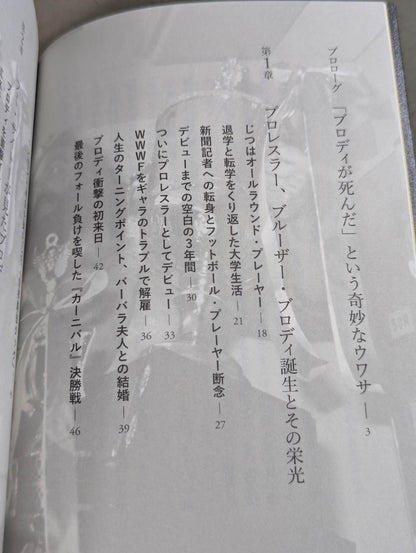 プロローグ 「ブロディが死んだ」という奇妙なウワサ — 3
第1章 プロレスラー、ブルーザー・ブロディ誕生とその栄光
じつはオールラウンド・プレーヤー — 18
退学と転学をくり返した大学生活 21
新聞記者への転身とフットボール・プレーヤー断念 — 27
デビューまでの空白の3年間 — 30
ついにプロレスラーとしてデビュー — 33
WWWFをギャラのトラブルで解雇 — 36
人生のターニングポイント、バーバラ夫人との結婚 — 39
ブロディ衝撃の初来日 — 42
最後のフォール負けを喫した『カーニバル』決勝戦 — 46